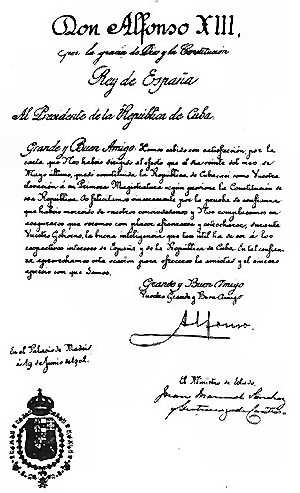 Don Alfonso XIII,
por la gracia de Dios y la Constitución
Rey de España
Al Presidente de la República de Cuba.
Grande y Buen Amigo: Hemos sabido con satisfacción, por la
carta que Nos habéis dirigido al efecto que el día veinte del mes de
Mayo último, quedó constituida la República de Cuba, así como Vuestra
elevación á su Primera Magistratura según previene la Constitución de
esa República. Os felicitamos sinceramente por la prueba de confianza
que habéis merecido de vuestros conciudadanos y Nos complacemos en
aseguraros que veremos con placer afianzarse y estrecharse, durante
Vuestro Gobierno, la buena inteligencia que tan útil ha de ser á los
respectivos intereses de España y de la República de Cuba. En tal confianza
aprovechamos esta ocasión para ofreceros la amistad y el sincero
aprecio con que Somos.
Grande y Buen Amigo
Vuestro Grande y Buen Amigo
Alfonso.
En el Palacio de Madrid
á 19 de Junio de 1902.
El Ministro de Estado,
Juan Manuel Sánchez
y Gutiérrez de Castro